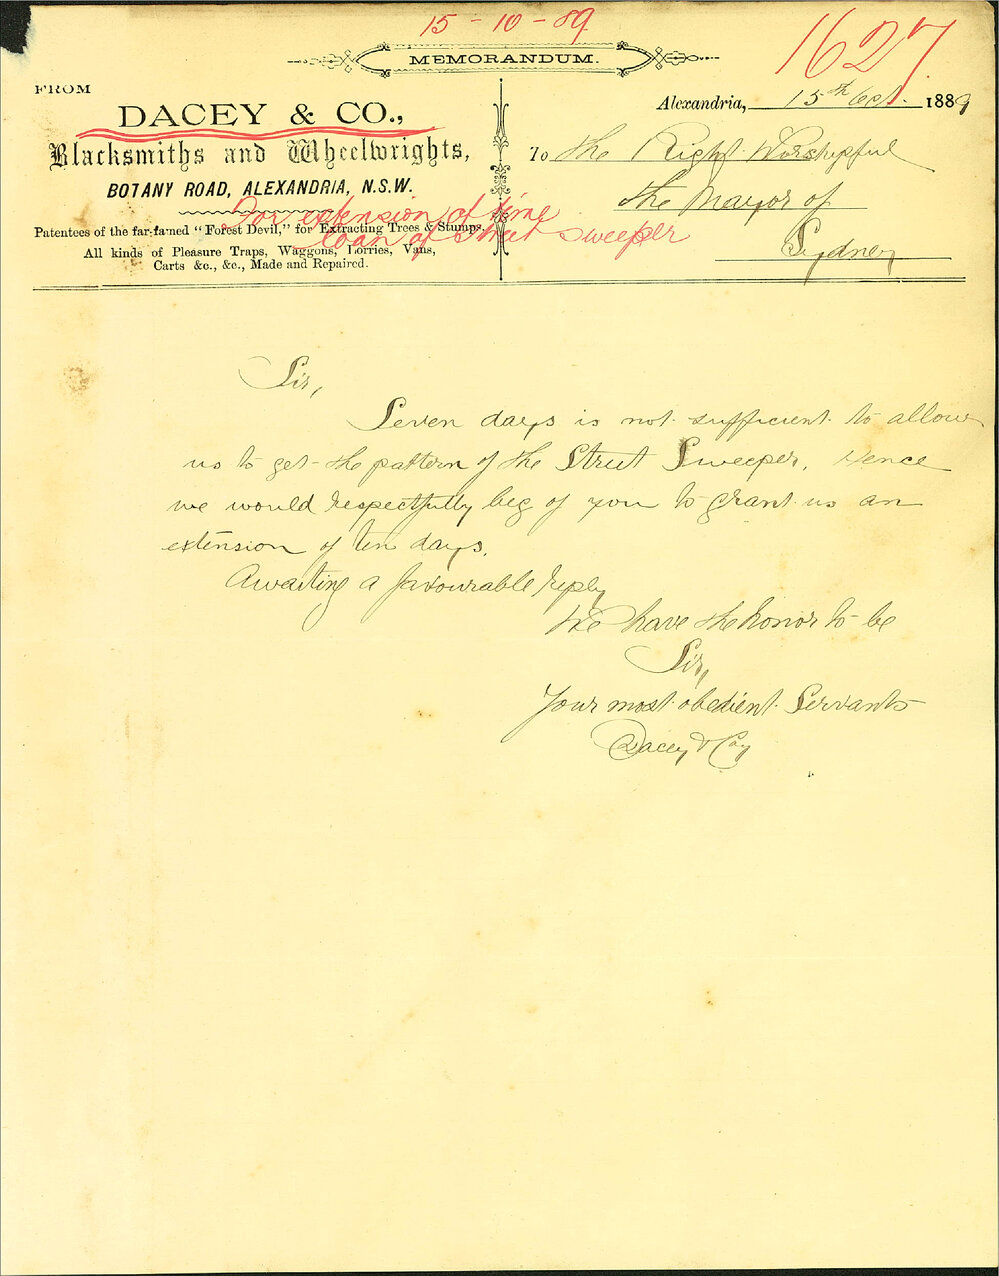 15 - 10 - 89
1627
MEMORANDUM.
FROM
DACEY & CO.,
Blacksmiths and Wheelwrights,
BOTANY ROAD, ALEXANDRIA, N.S.W.
Patentees of the far-famed "Forest Devil," for Extracting Trees & Stumps.
All kinds of Pleasure Traps, Waggons, Lorries, Vans,
Carts &c., &c., Made and Repaired.
For extension of time
loan of Street Sweeper
Alexandria, 15th Oct. 1889
To The Right Worshipful
the Mayor of
Sydney
Sir,
Seven days is not sufficient to allow
us to get the pattern of the Street Sweeper. Hence
we would respectfully beg of you to grant us an
extension of ten days.
Awaiting a favourable reply
We have the honor to be
Sir,
Your most obedient Servants
Dacey & Coy